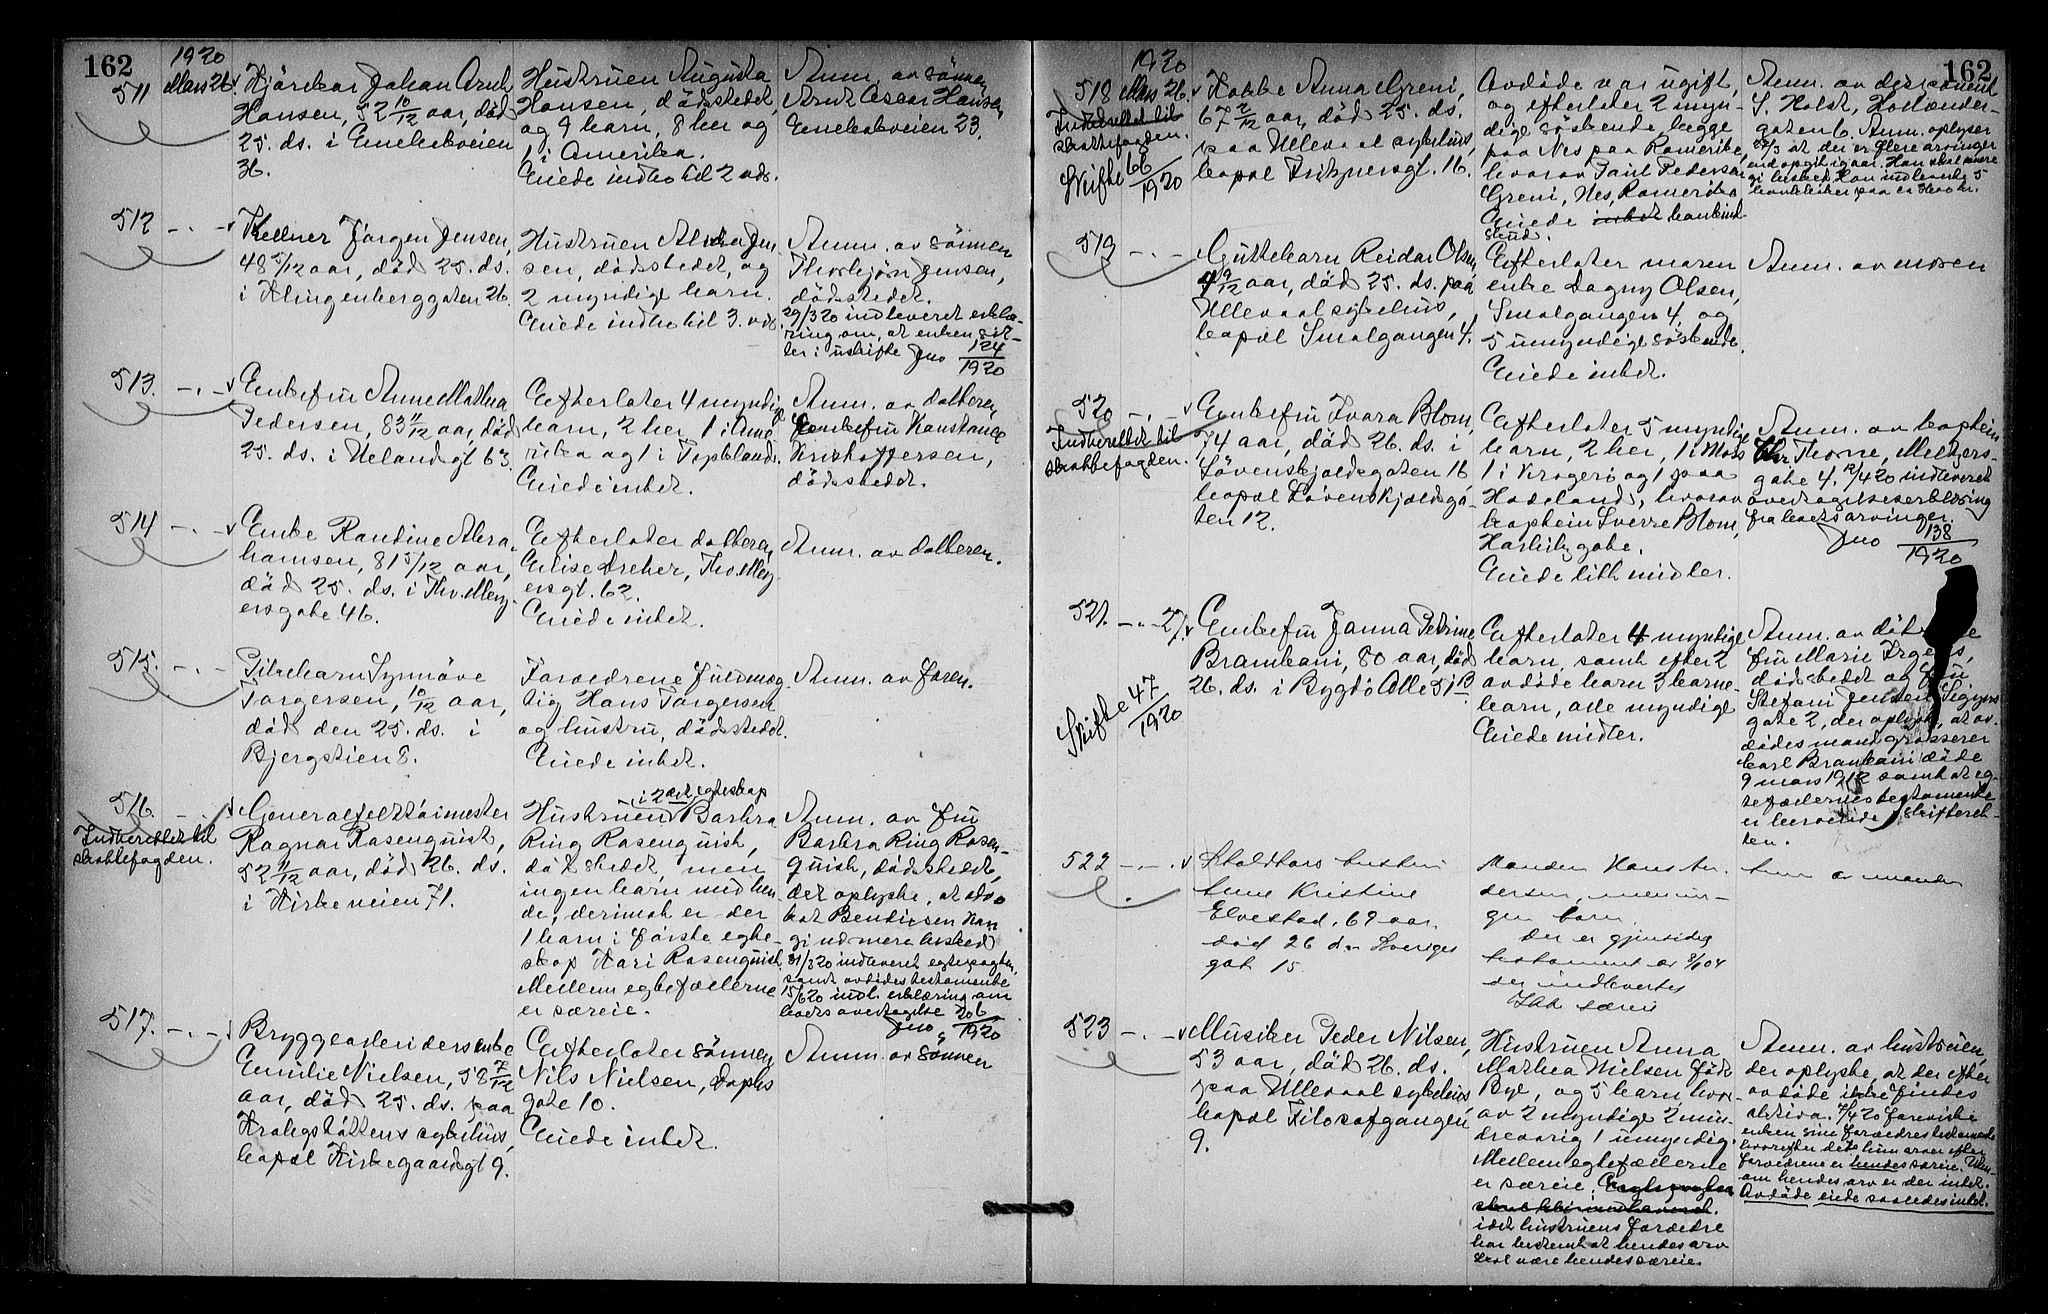 162
1920
511 Mars 26. Hjörekar Johan Arnt
Hansen, 52 10/12 aar, död
25. ds. i Enebakveien
36.
Hustruen Augusta
Hansen, dödsstedet,
og 9 barn, 8 her og
1 i Amerika.
Eiede indbo til 2 vds.
Anm. av sönnen
Arnt Oscar Hansen
Enebakveien 23.
512 -.- Kellner Jörgen Jensen,
48 5/12 aar, död 25. ds.
i Klingenberggaten 26.
Hustruen Jen
sen, dödsstedet, og
2 myndige barn.
Eiede indbo til 3. vds.
Anm. av sönnen
Thorbjörn Jensen,
dödsstedet.
29/3 20 indleveret erklæ-
ring om, at enken sit-
ter i uskifte Jno 124
1920
513. -.- Enkefru Anne Mathea
Pedersen, 83 11/12 aar, död
25. ds. i Uelandsgt 63.
Efterlater 4 myndige
barn, 2 her, 1 i Ame
rika og 1 i Tyskland.
Eiede intet.
Anm. av datteren,
Enkefru Konstance
Kristoffersen,
dödsstedet.
514 -.- Enke Randine Abra
hamsen, 81 5/12 aar,
död 25. ds. i Thv. Mey
ersgate 46.
Efterlater datteren,
Elise Dreher, Thv. Mey
ersgt. 62.
Eiede intet.
Anm. av datteren.
515. -.- Pikebarn Synnöve
Torgersen, 10/12 aar,
död den 25. ds. i
Bjergstien 8.
Forældrene fuldmæg
tig Hans Torgersen
og hustru, dödsstedet.
Eiede intet.
Anm. av faren.
516. -.- Generalfelttöimester
Indberettet til
skattefogden.
Ragnar Rosenquist,
52 11/12 aar, död 26. ds.
i Kirkeveien 71.
i 2det egteskap
Hustruen Barbra
Ring Rosenquist,
dödsstedet, men
ingen barn med hen
de, derimot er der
1 barn i förste egte-
skap Kari Rosenquist.
Mellem egtefællerne
er særeie.
Anm. av fru
Barbra Ring Rosen-
quist, dödsstedet,
det oplyste, at advo
kat Bendixsen kan
gi nærmere besked
31/3 20 indleveret egtepagten
samt avdödes testamente
15/6 20 indl. erklæring om
boets overtagelse 206
Jno 1920
517. -.- Bryggearbeiders enke
Emilie Nielsen, 58 7/12
aar, död 25. ds. paa
Krohgstöttens sykehus,
bopæl Kirkegaardsgt 9.
Efterlater sönnen
Nils Nielsen, Sophs
gate 10.
Eiede intet.
Anm. av sönnen
162
1920
518 Mars 26. Kokke Anna Greni,
Indberettet til
skattefogden.
Skifte 66
1920
67 2/12 aar, död 25. ds.
paa Ullevaal sykehus,
bopæl Fritznersgt. 16.
Avdöde var ugift,
og efterlater 2 myn-
dige söskende, begge
paa Nes paa Romerike,
hvorav Paul Pedersen
Greni, Nes, Romerike
Eiede intet bankind
skud.
Anm. av disponent
S. Holst, Hollænder-
gaten 6. Anm. oplyser
27/3 at der er flere arvinger
end opgit igaar. Han skal nærmere
gi besked. Han indleverte 5
519 -.- Guttebarn Reidar Olsen,
4 9/12 aar, död 25. ds. paa
Ullevaal sykehus,
bopæl Smalgangen 4.
Efterlater moren
enke Dagny Olsen,
Smalgangen 4, og
5 umyndige söskende.
Eiede intet.
Anm. av moren
520 -.- Enkefru Ivara Blom,
Indberettet til
skattefogden.
74 aar, död 26. ds. i
Lövenskjoldsgaten 16
bopæl Lövenskjoldsga
ten 12.
Efterlater 5 myndige
barn, 2 her, 1 i Moss
1 i Kragerö og 1 paa
Hadeland, hvorav
kaptein Sverre Blom,
Harbitzgate.
Eiede litt midler.
Anm. av kaptein
Thr. Thorne, Meltzers-
gate 4. 12/4 20 indleveret
overtagelseserklæring
fra boets arvinger.
Jno 138
1920
521. -.- 27. Enkefru Janna Petrine
Skifte 47
1920
Brambani, 80 aar, död
26. ds. i Bygdö Alle 51 B
Efterlater 4 myndige
barn, samt efter 2
avdöde barn 3 barne-
barn, alle myndige
Eiede midler.
Anm. av döt
fru Marie Irgens,
dödsstedet og fru
Stefani Jensen, Sigyns
gate 2, der oplyste, at av
dödes mand grosserer
Carl Brambani döde
9 mars 1912 samt at eg-
tefællernes testamente
er beroende i skifteret-
ten.
522 -.- Staldkars hustru
Anne Kristine
Elvestad, 69 aar
död 26 ds Sveriges
gat 15.
Manden Hans An-
dersen, men in-
gen barn.
Der er gjensidig
testament av 8/6 04
der indlevertes
Ikke særeie
Anm av manden
523 -.- Musiker Peder Nilsen,
53 aar, död 26. ds.
paa Ullevaal sykehus
bopæl Filosofgangen
9.
Hustruen Anna
Mathea Nielsen föd
Bye, og 5 barn hvor-
av 2 myndige 2 min-
dreaarig 1 umyndig.
Mellem egtefællerne
er særeie.
idet hustruens forældre
har bestemt at hendes arv
skal være hendes særeie.
Anm. av hustruen,
der oplyste, at der efter
avdöde ikke findes
aktiva. 7/4 20 foreviste
enken sine forældres testamente
hvorefter det hun arver efter
forældrene er hendes særeie. Uten
om hendes arv er der intet.
Avdöde eiede saaledes intet.